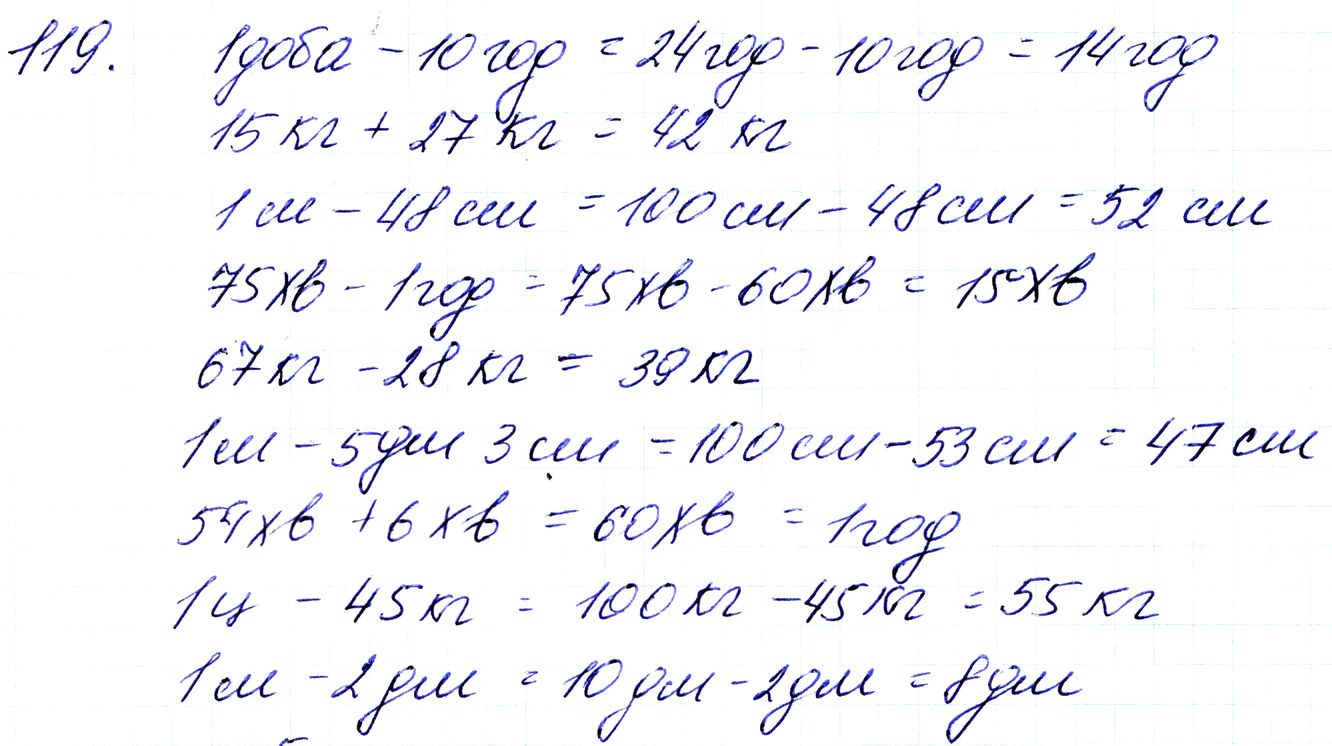 119. 1доба - 10год = 24год - 10год = 14год
15кг + 27кг = 42кг
1м - 48см = 100см - 48см = 52 см
75хв - 1год = 75хв - 60хв = 15хв
67кг - 28кг = 39кг
1м - 5дм 3см = 100см - 53см = 47см
54хв + 6хв = 60хв = 1год
1ц - 45кг = 100кг - 45кг = 55кг
1м - 2дм = 10дм - 2дм = 8дм